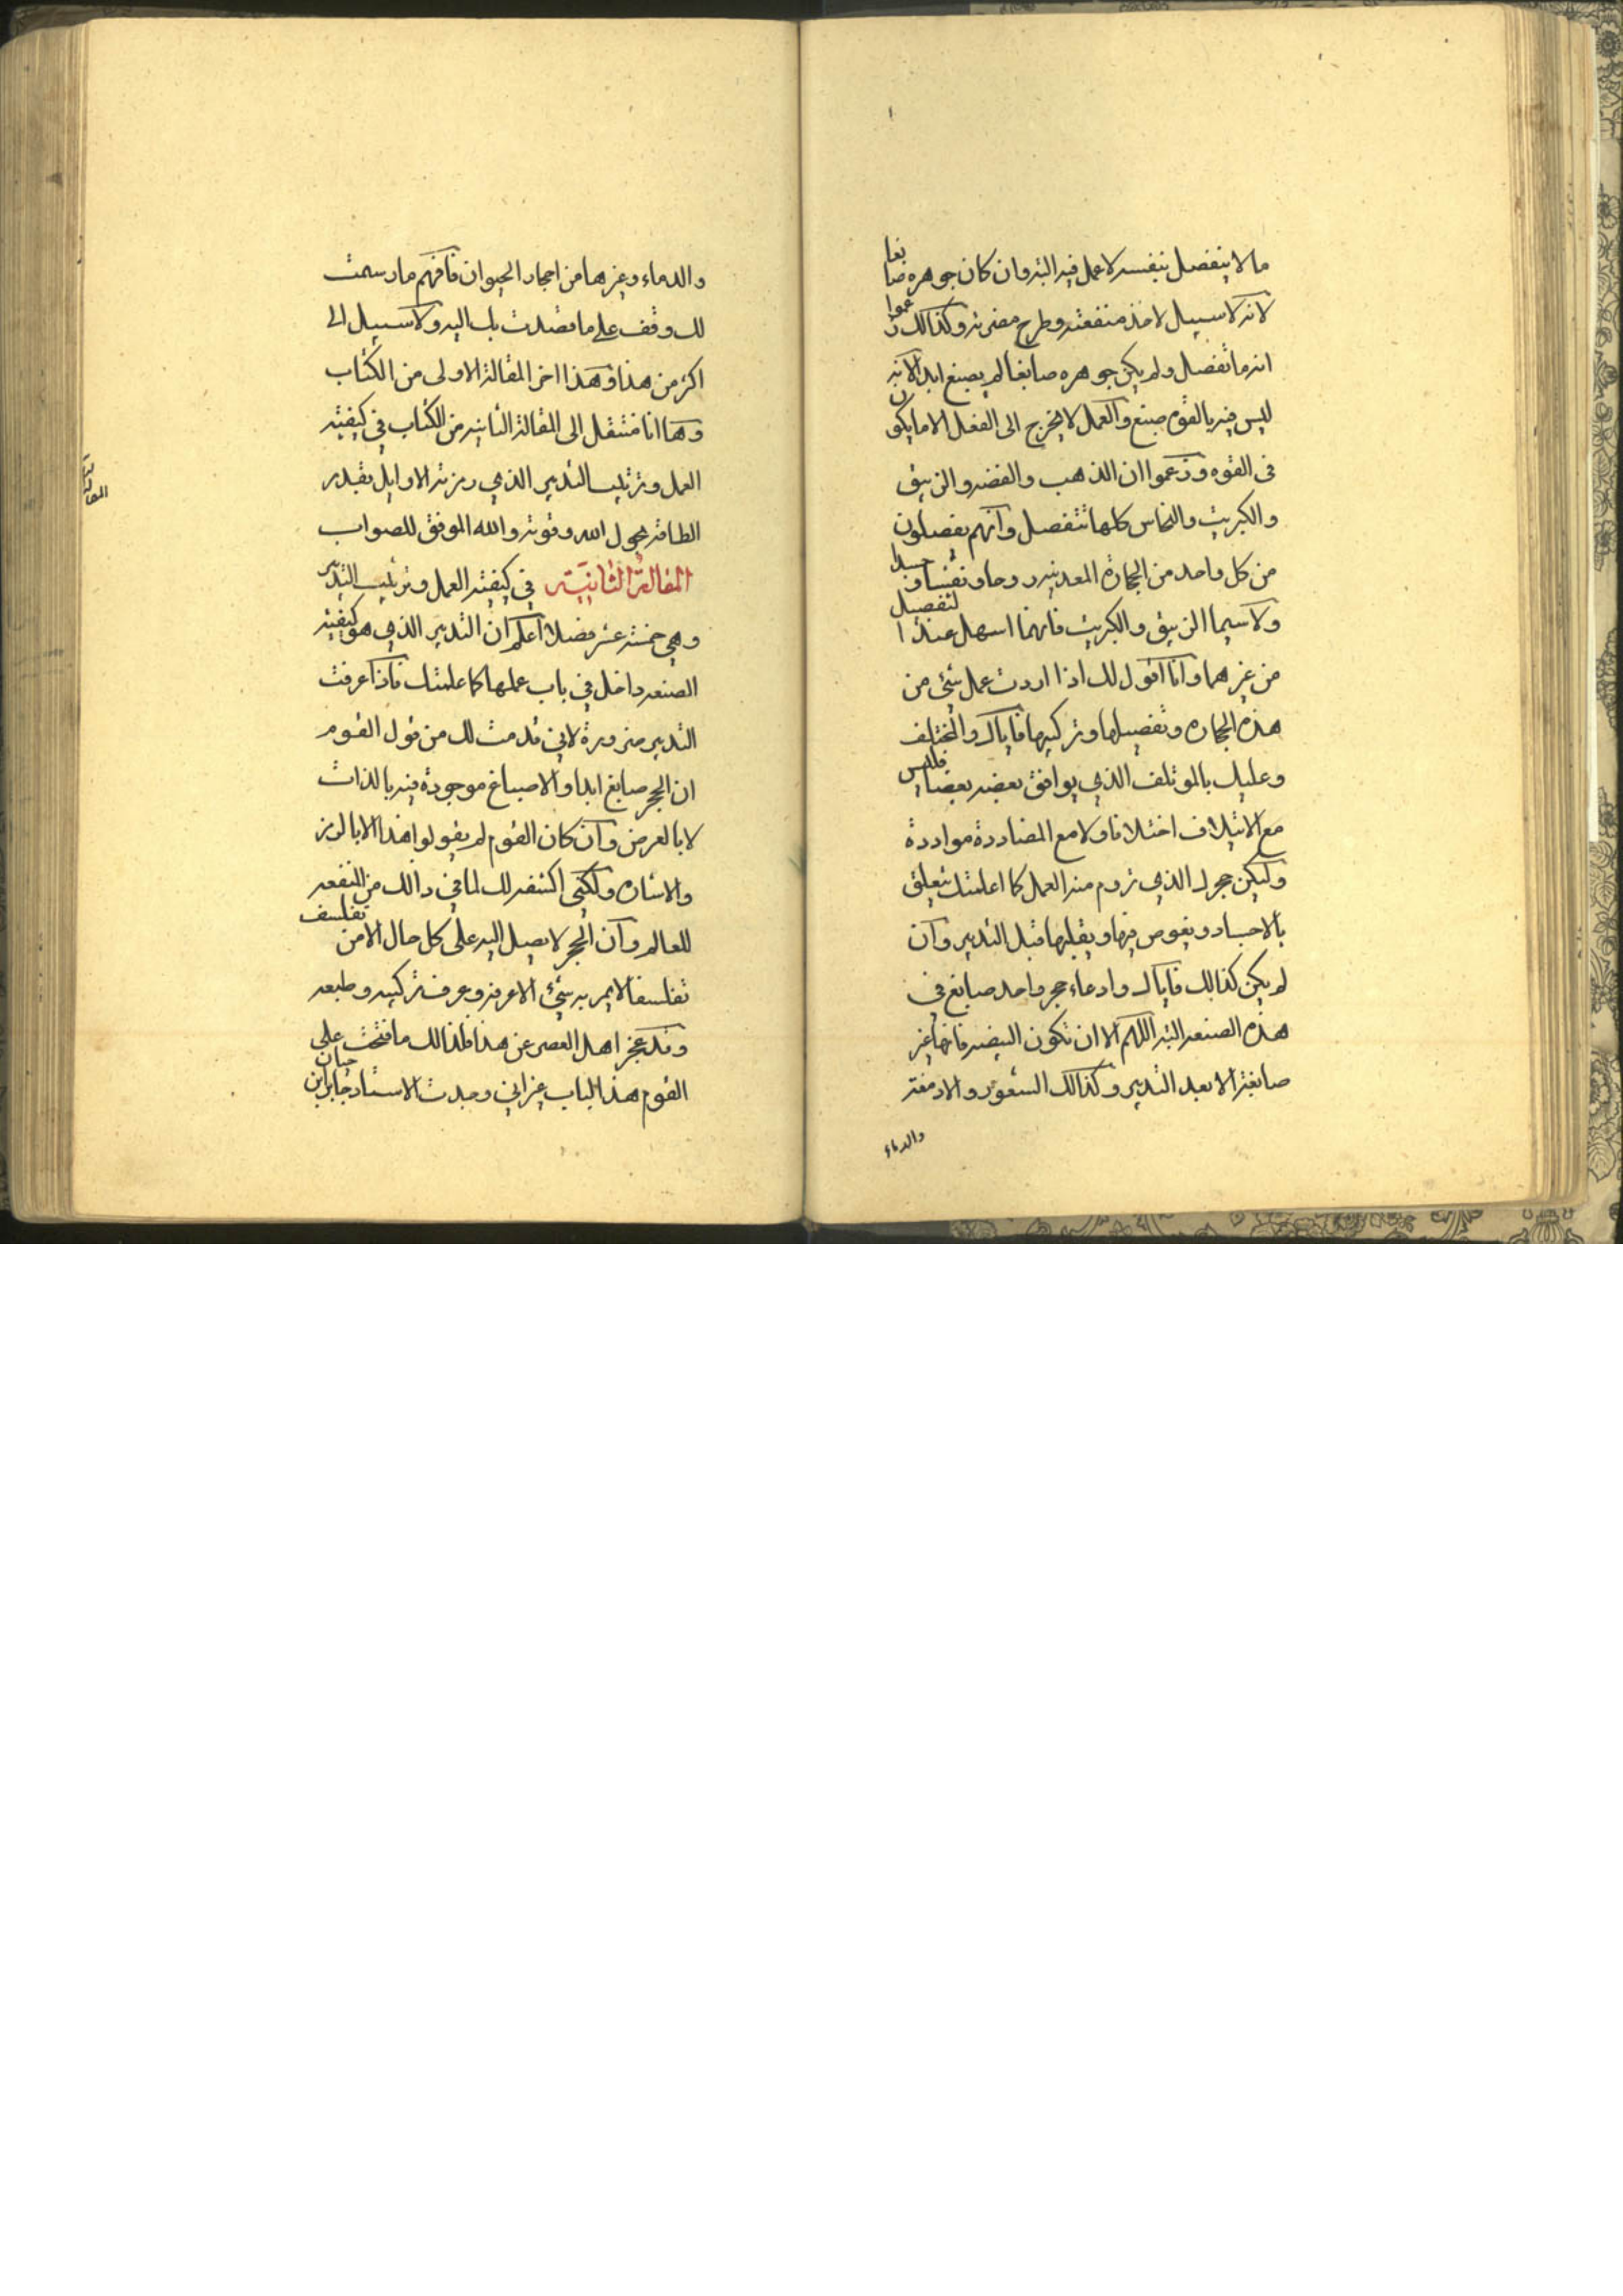 ما لا ينفصل بنفسه لا عمل فيه البتة وان كان جوهره صابغا
لانه لا سبيل لاخذ منفعته وطرح مضرته وكذالك زعموا
انه ما تفصل ولم يكن جوهره صابغا لم يصبغ ابدا لانه
ليس فيه بالقوة صبغ والعمل لا يخرج الى الفعل الا ما يكون
فى القوه وزعموا ان الذهب والفضه والزيبق
والكبريت والنحاس كلها تتفصل وانهم يفصلون
من كل واحد من الحجارة المعدنيه روحا ونفسا وجسدا
ولا سيما الزيبق والكبريت فانهما اسهل عندا لتفصيل
من غيرهما وانا اقول لك اذا اردت عمل شئ من
هذه الحجاره وتفصيلها وتركيبها فاياك والمختلف
وعليك بالموتلف الذي يوافق بعضه بعضا فليس
مع الايتلاف اختلافا ولا مع المضاددة مواددة
وليكن حجرك الذي تروم منه العمل كما اعلمتك يتعلق
بالاجساد ويغوص فيها ويقلبها قبل التدبير وان
لم يكن كذالك فاياك وادعاء حجر واحد صابغ في
هذه الصنعه البته اللهم الا ان تكون البيضه فانها غير
صابغة الا بعد التدبير وكذالك الشعور والادمغة
والدماء
والدماء وغيرها من احجار الحيوان فافهم ما رسمت
لك وقف على ما قصدت بك اليه ولا سبيل الى
اكثر من هذا وهذا اخر المقالة الاولى من الكتاب
وها انا منتقل الى المقالة الثانيه من الكتاب في كيفية
العمل وترتيب التدبير الذي رمزته الاوايل بقدر
الطاقة بحول الله وقوته والله الموفق للصواب
المقالة الثانية في كيفية العمل وترتيب التدبير
وهي خمسة عشر فصلا اعلم ان التدبير الذي هو كيفية
الصنعه داخل في باب عملها كما علمتك فاذا عرفت
التدبير ضرورة لاني قدمت لك من قول القوم
ان الحجر صابغ ابدا والاصباغ موجودة فيه بالذات
لا بالعرض وان كان القوم لم يقولوا هذا الا بالرمز
والاشاره ولكني اكشفه لك لما في ذالك من النفعه
للعالم وان الحجر لا يصل اليه على كل حال الا من تفلسف
تفلسفا لا يمر به شئ الا عرفه وعرف تركيبه وطبعه
وقد عجز اهل العصر عن هذا فلذالك ما فتحت على
القوم هذا الباب غير اني وجدت الاستاد جابر ابن حيان